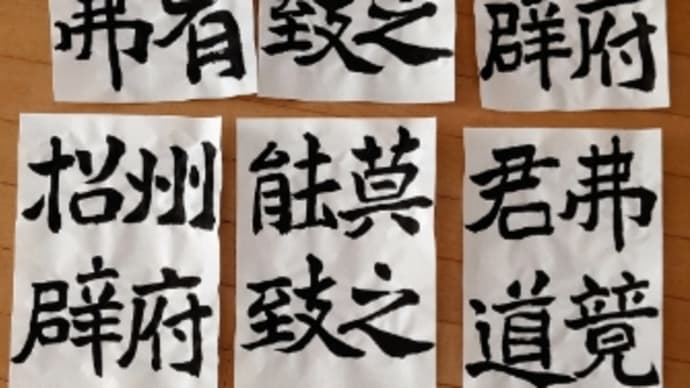 府
辟
之
致
有
弗
弗竟
君道
莫之
能致
州府
招辟